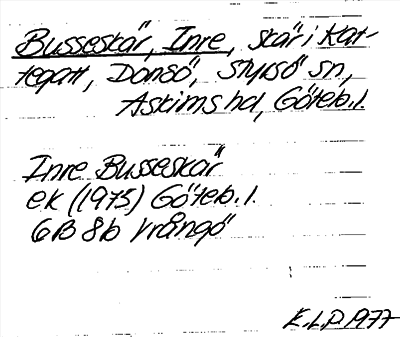 Busseskär, Inre, skär i Kat-
tegatt, Donsö, Styrsö sn,
Askims hd, Göteb. l.
Inre Busseskär
ek (1975) Göteb. l.
6B 8b Vrångö
E.L.P. 1977